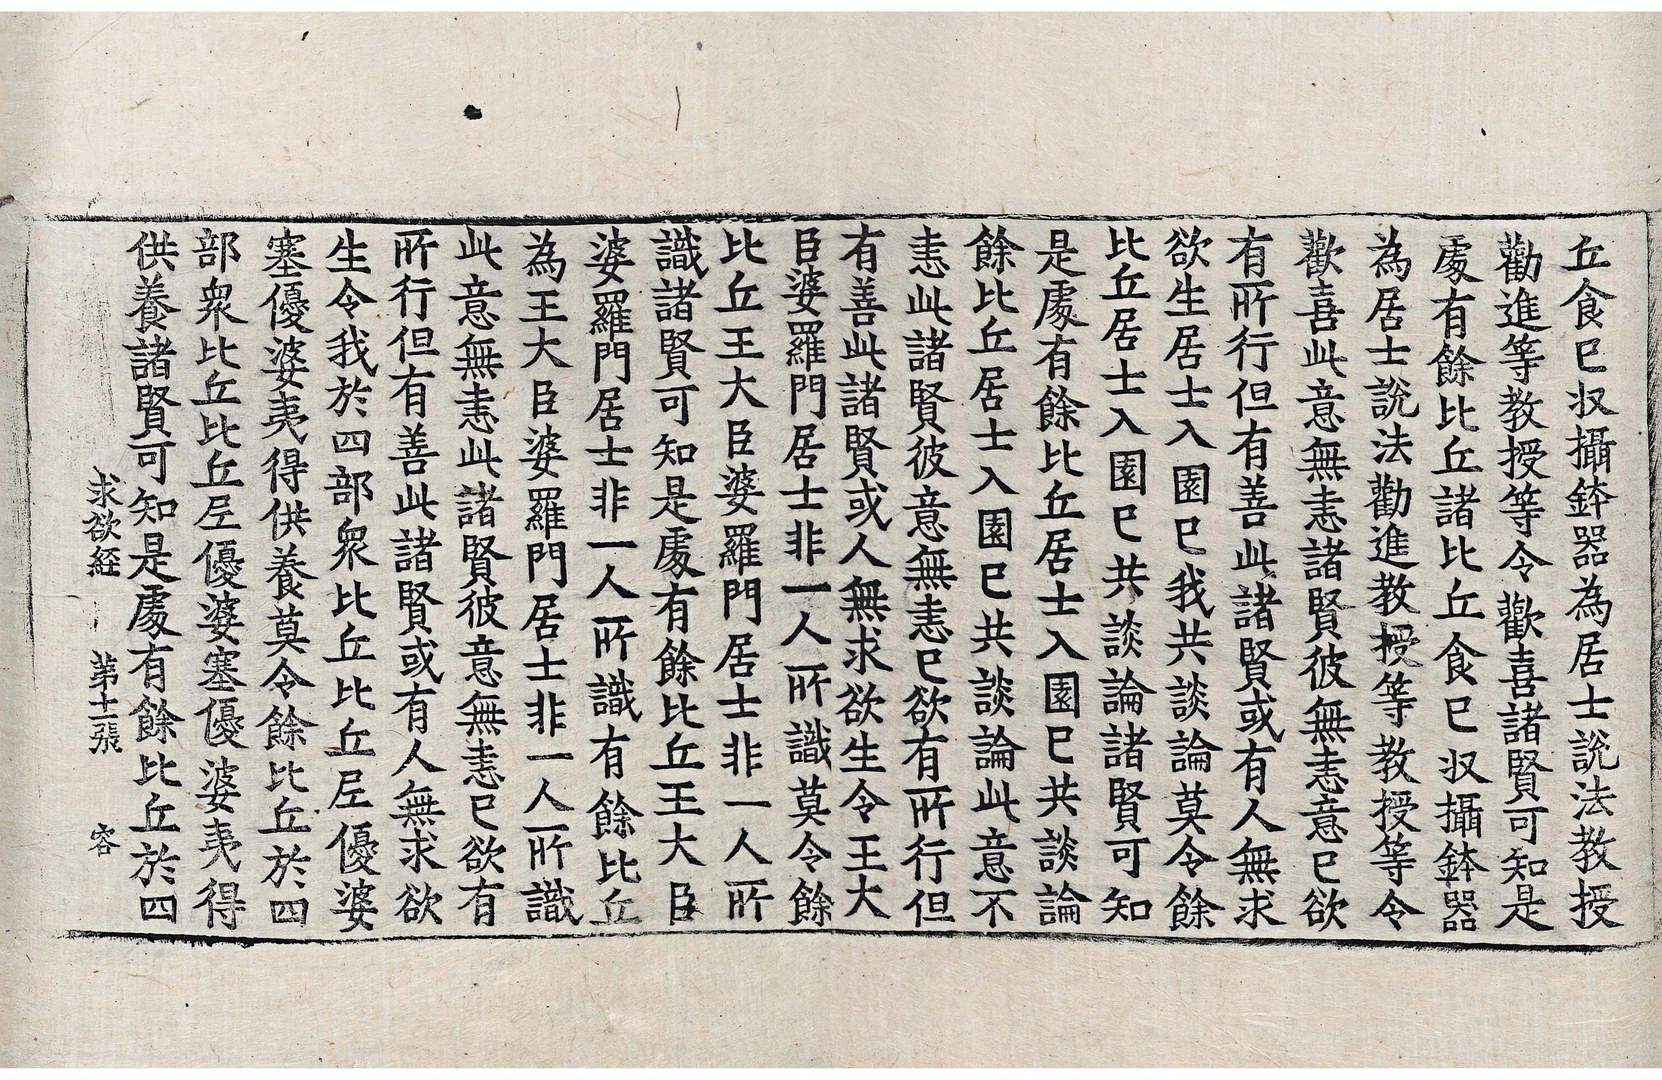 丘食已収攝鉢器為居士說法教授
勸進等教授等令歡喜諸賢可知是
處有餘比丘諸比丘食已収攝鉢器
為居士說法勸進教授等教授等令
歡喜此意無恚諸賢彼無恚意已欲
有所行但有善此諸賢或有人無求
欲生居士入園已我共談論莫令餘
比丘居士入園已共談論諸賢可知
是處有餘比丘居士入園已共談論
餘比丘居士入園已共談論此意不
恚此諸賢彼意無恚已欲有所行但
有善此諸賢或人無求欲生令王大
臣婆羅門居士非一人所識莫令餘
比丘王大臣婆羅門居士非一人所
識諸賢可知是處有餘比丘王大臣
婆羅門居士非一人所識有餘比丘
為王大臣婆羅門居士非一人所識
此意無恚此諸賢彼意無恚已欲有
所行但有善此諸賢或有人無求欲
生令我於四部衆比丘比丘尼優婆
塞優婆夷得供養莫令餘比丘於四
部衆比丘比丘尼優婆塞優婆夷得
供養諸賢可知是處有餘比丘於四
求欲經 第十二張 容